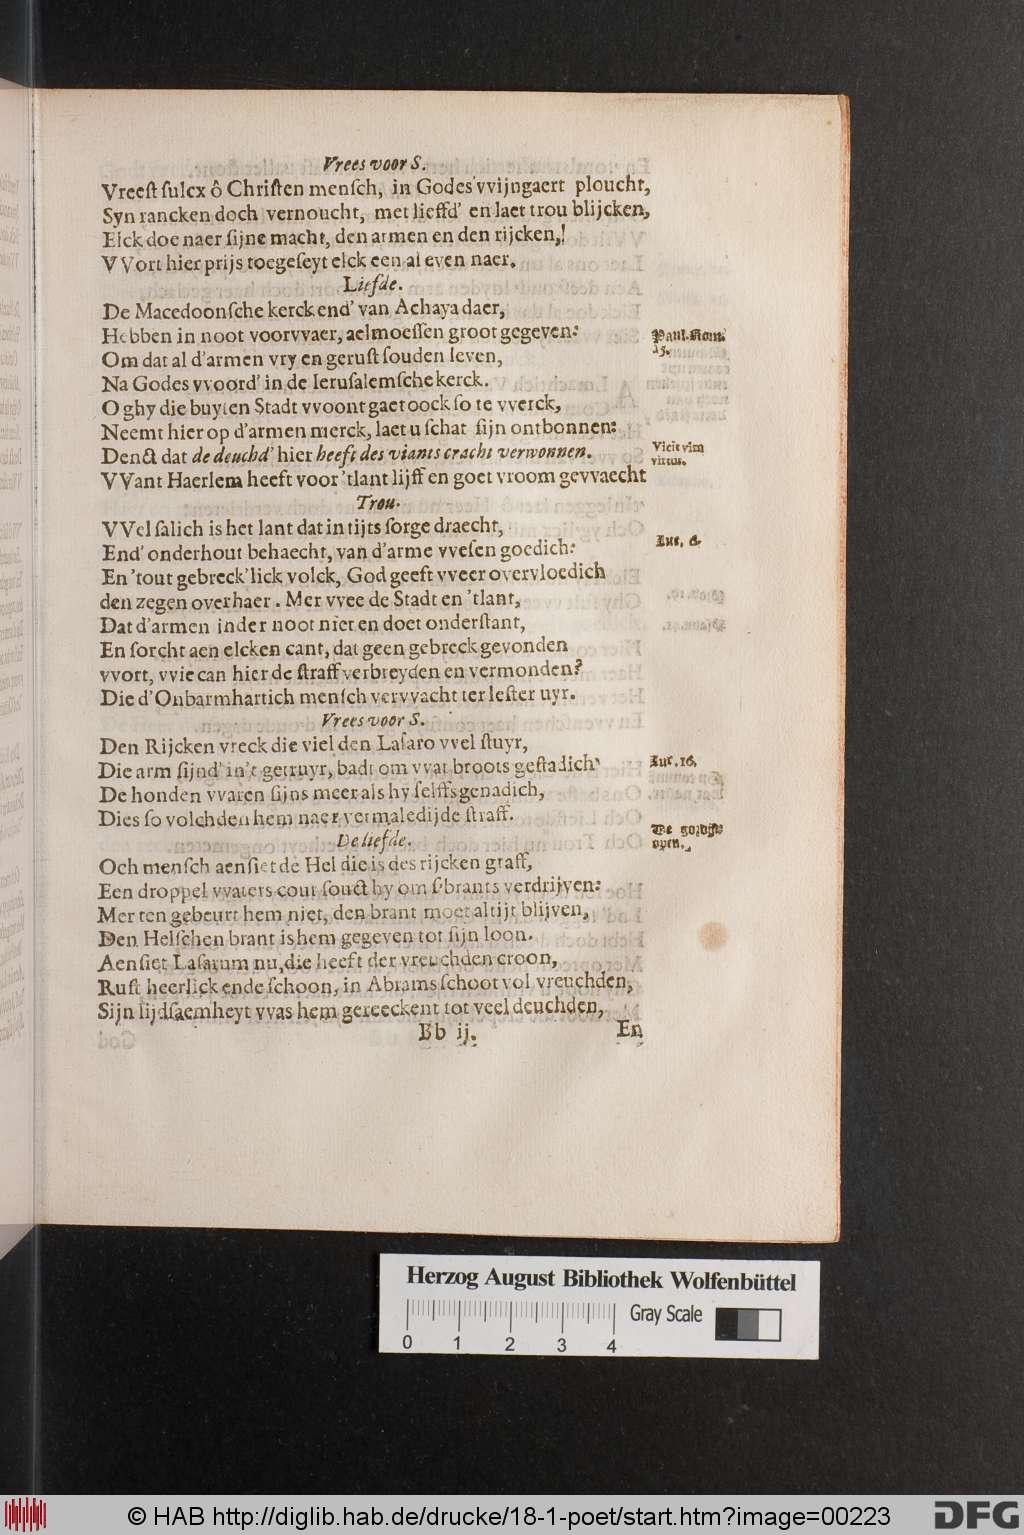 Vrees voor S.
Vreeſt ſulcx ô Chriſten menſch, in Godes vvijngaert ploucht,
Syn rancken doch vernoucht, met lieffd' en laet trou blijcken,
Elck doe naer ſijne macht, den armen en den rijcken,!
VVort hier prijs toegeſeyt elck een al even naer.
Liefde.
De Macedoonſche kerck end' van Achaya daer,
Hebben in noot voorvvaer, aelmoeſſen groot gegeven:
Paul. Rom.
15.
Om dat al d'armen vry en geruſt ſouden leven,
Na Godes vvoord' in de Ieruſalemſche kerck.
O ghy die buyten Stadt vvoont gaet oock ſo te vverck,
Neemt hier op d'armen merck, laet u ſchat ſijn ontbonnen:
Denct dat de deuchd' hier heeft des viants cracht verwonnen.
Vicit vim
virtus.
VVant Haerlem heeft voor 'tlant lijff en goet vroom gevvaecht
Trou.
VVel ſalich is het lant dat in tijts ſorge draecht,
End' onderhout behaecht, van d'arme vveſen goedich:
Luc. 6.
En 'tout gebreck'lick volck, God geeft vveer overvloedich
den zegen over haer. Mer vvee de Stadt en 'tlant,
Dat d'armen in der noot niet en doet onderſtant,
En ſorcht aen elcken cant, dat geen gebreck gevonden
vvort, vvie can hier de ſtraff verbreyden en vermonden?
Die d'Onbarmhartich menſch vervvacht ter leſter uyr.
Vrees voor S.
Den Rijcken vreck die viel den Laſaro vvel ſtuyr,
Die arm ſijnd' in't getruyr, badt om vvat broots geſtadich'
Luc. 16.
De honden vvaren ſijns meer als hy ſelffs genadich,
Dies ſo volchden hem naer vermaledijde ſtraff.
De liefde.
Och menſch aenſiet de Hel die is des rijcken graff,
Een droppel vvaters cout ſouct hy om ſ'brants verdrijven:
Mer ten gebeurt hem niet, den brant moet altijt blijven,
Den Helſchen brant is hem gegeven tot ſijn loon.
Aenſiet Laſarum nu, die heeft der vreuchden croon,
Ruſt heerlick ende ſchoon, in Abrams ſchoot vol vreuchden,
Sijn lijdſaemheyt vvas hem gereeckent tot veel deuchden,
Bb ij. En
Herzog August Bibliothek Wolfenbüttel
Gray Scale
0 1 2 3 4
© HAB http://diglib.hab.de/drucke/18-1-poet/start.htm?image=00223
DFG